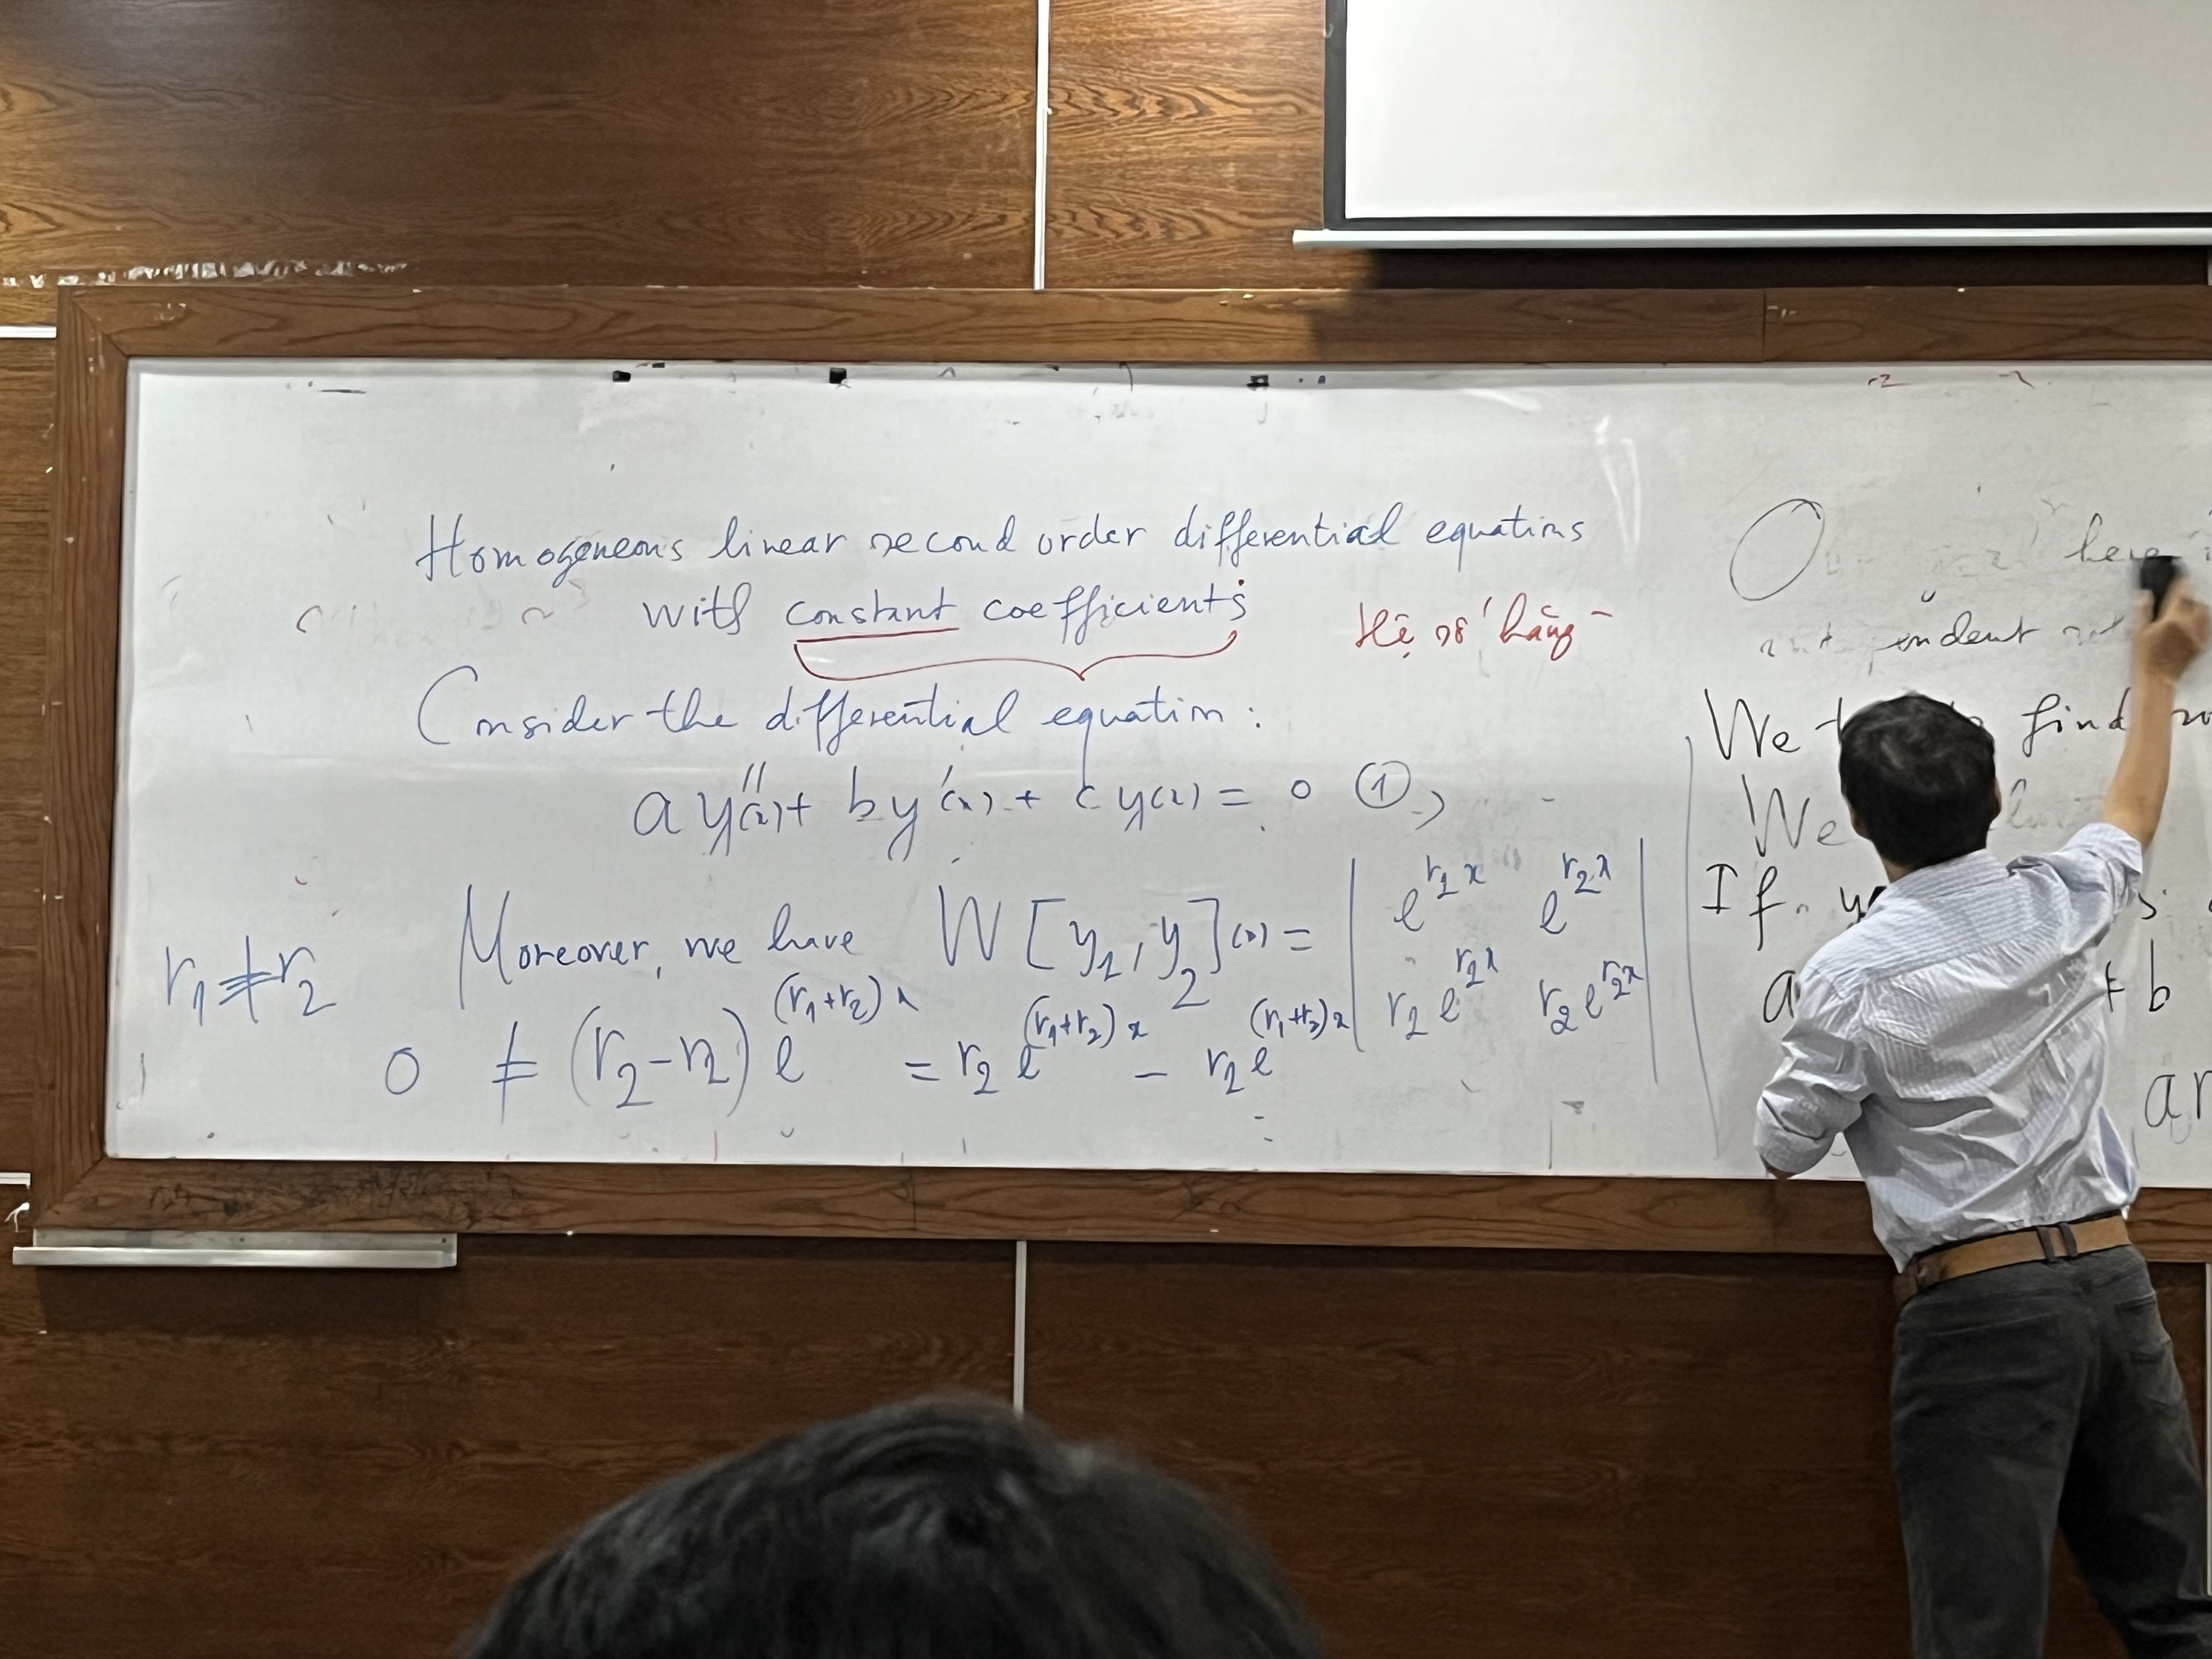 Homogeneous linear second order differential equations
with constant coefficients
Hệ số hằng
Consider the differential equation:
a y''(x) + b y'(x) + c y(x) = 0 ①,
r₁ ≠ r₂
Moreover, we have W[y₁, y₂](x) = | e^{r₁x} e^{r₂x} |
| r₁e^{r₁x} r₂e^{r₂x} |
0 ≠ (r₂-r₁) e^{(r₁+r₂)x} = r₂e^{(r₁+r₂)x} - r₁e^{(r₁+r₂)x}
We find
We
If
a + b